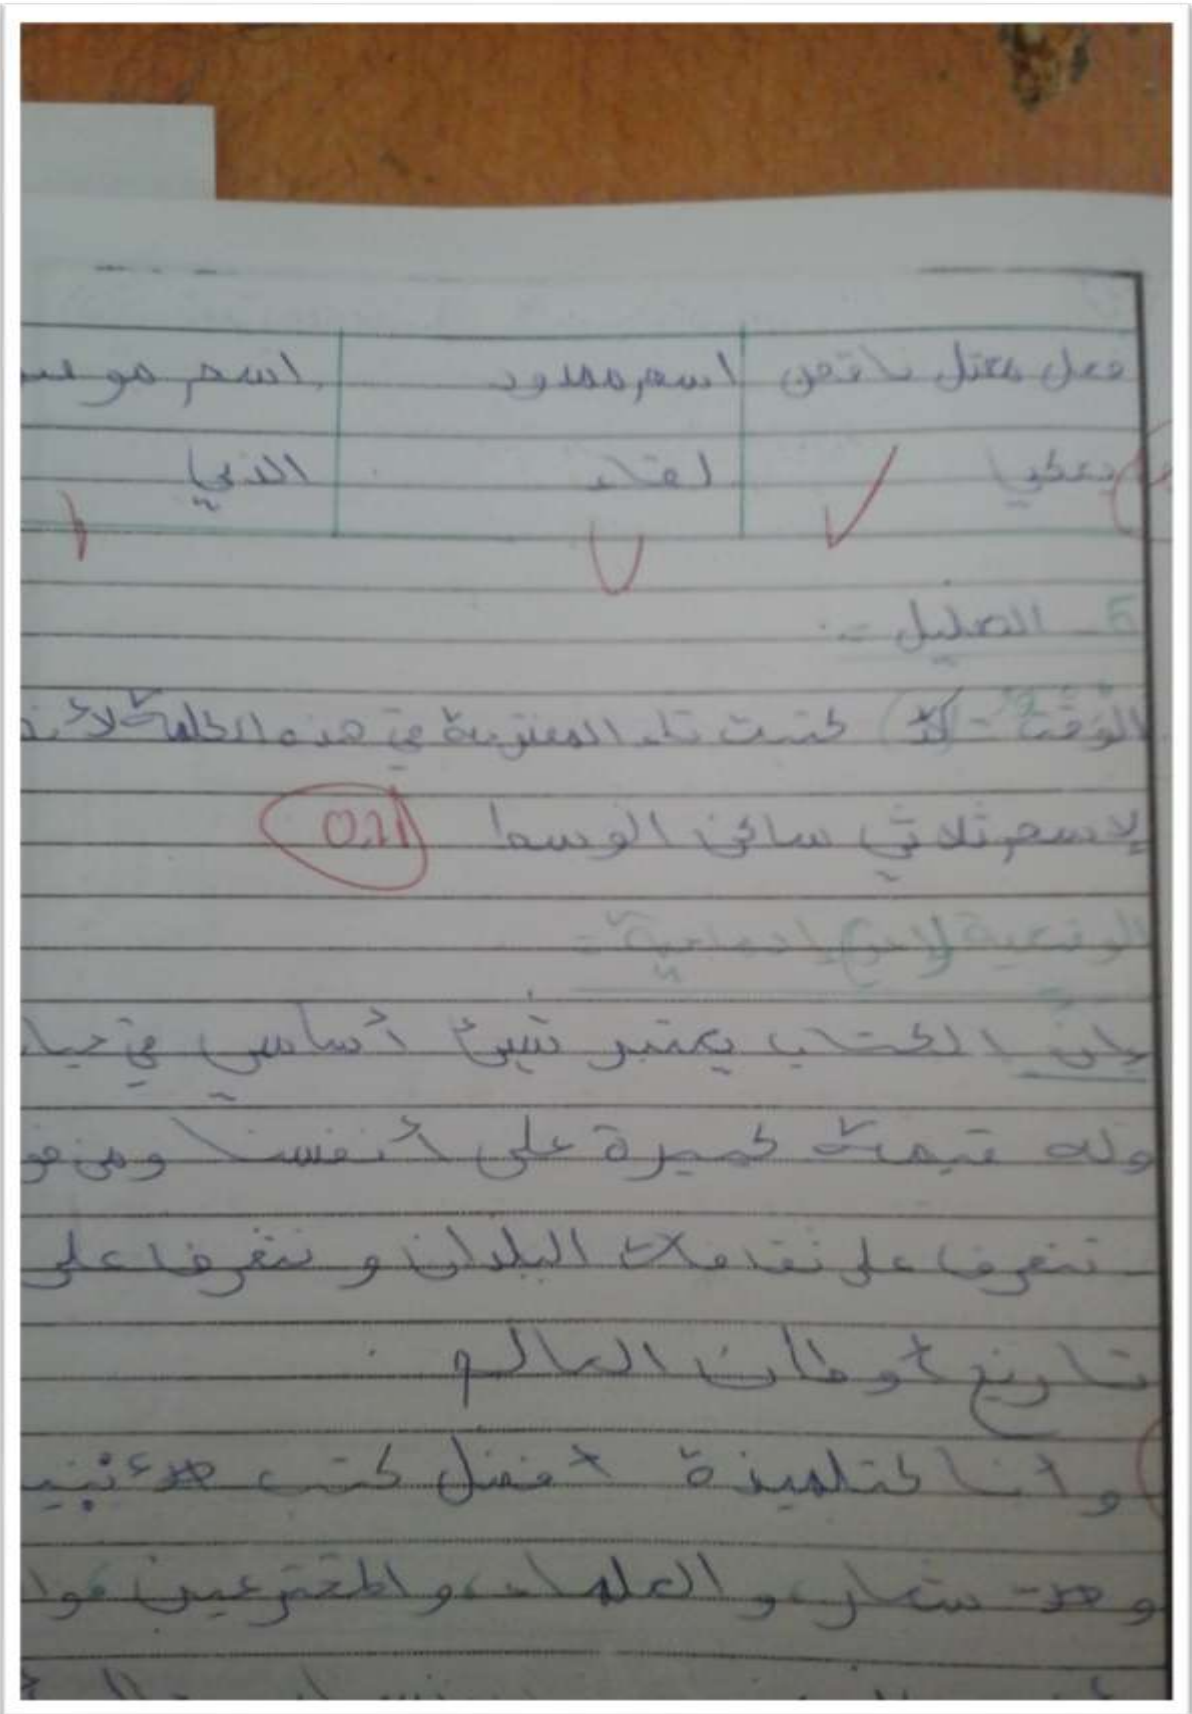 فعل معتل ناقص اسم ممدود اسم
يحكي لقاء الذي
5 - التعليل :-
الوقت - كتبت تاء المفتوحة في هذه الكلمة لأن
لاسم ثلاثي ساكن الوسط
الوضعية الإدماجية -
إن الكتاب يعتبر شيئ أساسي في
وله قيمة كبيرة على أنفسنا ومن
نتعرفا على ثقافات البلدان و نتعرفا على
تاريخ أوطان العالم .
و أنا كتلميذة أفضل كتب
و شعار، و العلماء، و المخترعين